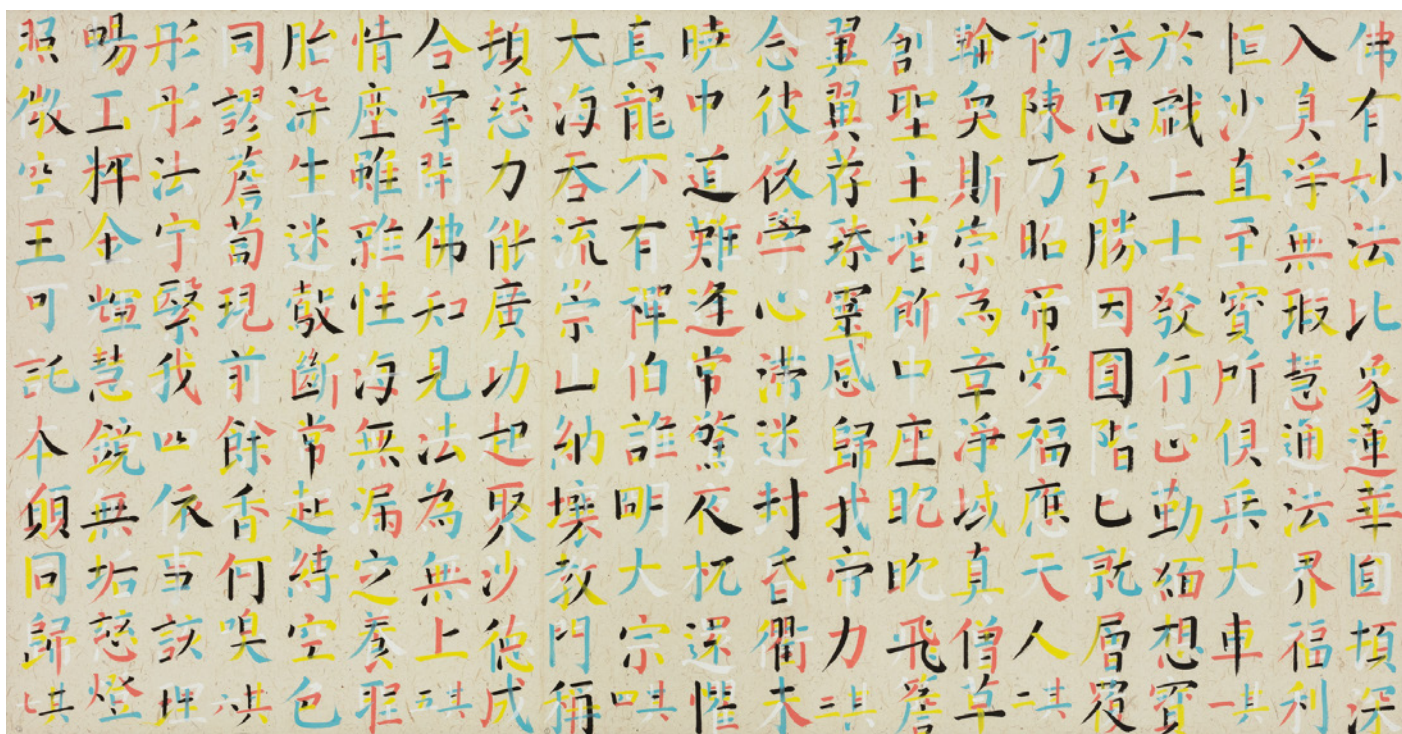 佛有妙法比象蓮華圓頓深
入真淨無瑕慧通法界福利
恒沙直至寶所俱乘大車其一
於戲上士發行正勤緬想寶
塔思弘勝因圓階已就層覆
初陳乃昭帝夢福應天人其二
輪奐斯崇為章淨域真僧草
創聖主增飾中座眈眈飛簷
翼翼荐臻靈感歸我帝力其三
念彼後學心滯迷封昏衢木
曉中道難逢常驚夜枕還懼
真龍不有禪伯誰明大宗其四
大海吞流崇山納壤教門稱
頓慈力能廣功起聚沙德成
合掌開佛知見法為無上其五
情塵雖雜性海無漏定養聖
胎染生迷鷇斷常起縛空色
同謬薝蔔現前餘香何嗅其六
彤彤法宇繄我四依事該理
暢工粹金輝慧鏡無垢慈燈
照微空王可託本願同歸其七